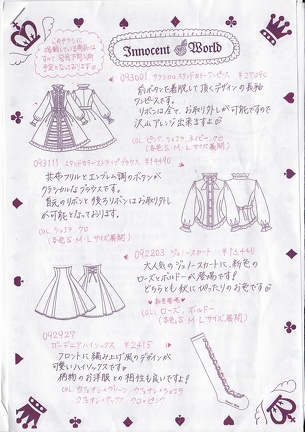 このチラシに
掲載している商品は
すべて 9月下旬入荷
予定となっております
Innocent World
093601 クラシカルスタンドカラーワンピース ¥29040
前ボタンで着脱して頂くデザインの長袖
ワンピースです。
リボンは全て、お取り外しが可能ですので
沢山アレンジ出来ますよ
COL ピンク、ショコラ、ネイビー、クロ
(各色 S・M・Lサイズ展開)
093111 スタンドカラーストライプブラウス ¥14490
共布フリルとエンブレム調のボタンが
クラシカルなブラウスです。
首元のリボンと後ろリボンはお取り外し
が可能となっております。
COL ショコラ、クロ
(各色 S・M・Lサイズ展開)
092203 ジェノースカート ¥13,440
大人気のジェノースカートに新色の
ローズとボルドーが登場です!
どちらも秋にぴったりのお色です
新色登場
COL ローズ、ボルドー
(各色 S・M・Lサイズ展開)
092927
ガーデニアハイソックス ¥2415
フロントに編み上げ風のデザインが
可愛いハイソックスです!
柄物のお洋服との相性も良いですよ!